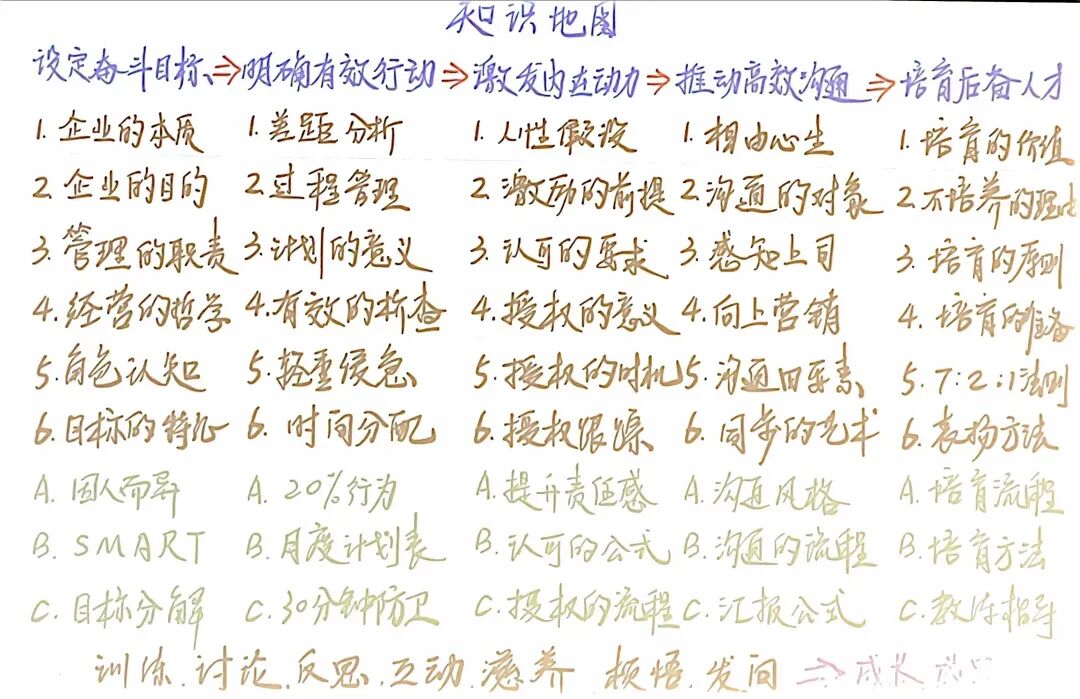 知识地图
设定奋斗目标、⇒明确有效行动⇒激发内在动力⇒推动高效沟通⇒培育后备人才
1.企业的本质 1.差距分析 1.人性假设 1.相由心生 1.培育的价值
2.企业的目的 2.过程管理 2.激励的前提 2.沟通的对象 2.不培养的理由
3.管理的职责 3.计划的意义 3.认可的要求 3.感知上司 3.培育的原则
4.经营的哲学 4.有效的检查 4.授权的意义 4.向上营销 4.培育的准备
5.角色认知 5.轻重缓急 5.授权的时机 5.沟通四要素 5.7:2:1法则
6.目标的特征 6.时间分配 6.授权跟踪 6.同步的艺术 6.表扬方法
A.因人而异 A.20%行为 A.提升责任感 A.沟通风格 A.培育流程
B.SMART B.月度计划表 B.认可的公式 B.沟通的流程 B.培育方法
C.目标分解 C.30分钟防卫 C.授权的流程 C.汇报公式 C.教练指导
训练.讨论.反思.互动.滋养 顿悟.发问⇒成长